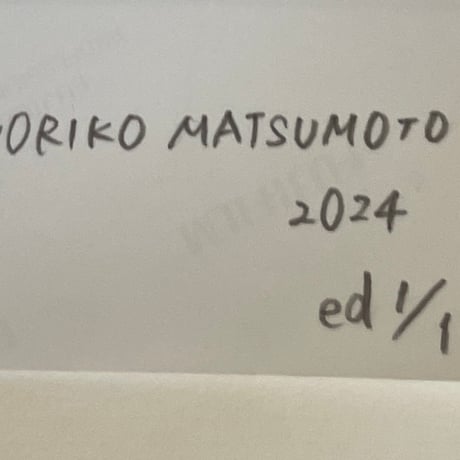 ORIKO MATSUMOTO
2024
ed 1/1